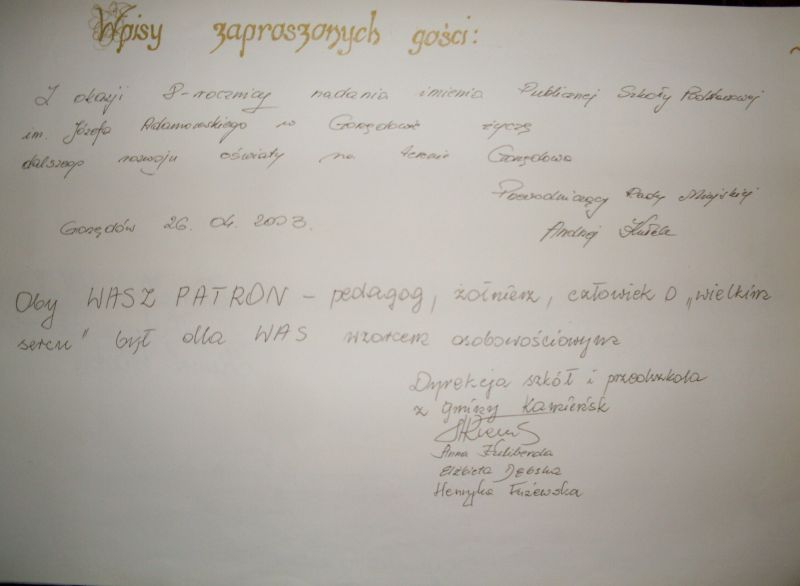 Wpisy zaproszonych gości:
Z okazji 8-rocznicy nadania imienia Publicznej Szkoły Podstawowej
im. Józefa Adamowskiego w Gorzędowie życzę
dalszego rozwoju oświaty na terenie Gorzędowa
Przewodniczący Rady Miejskiej
Gorzędów 26. 04. 2003.
Andrzej
Oby WASZ PATRON – pedagog, żołnierz, człowiek O „wielkim
sercu" był dla WAS wzorcem osobowościowym
Dyrekcja szkół i przedszkola
z gminy Kamieńsk
Anna
Elżbieta Dębska
Henryka